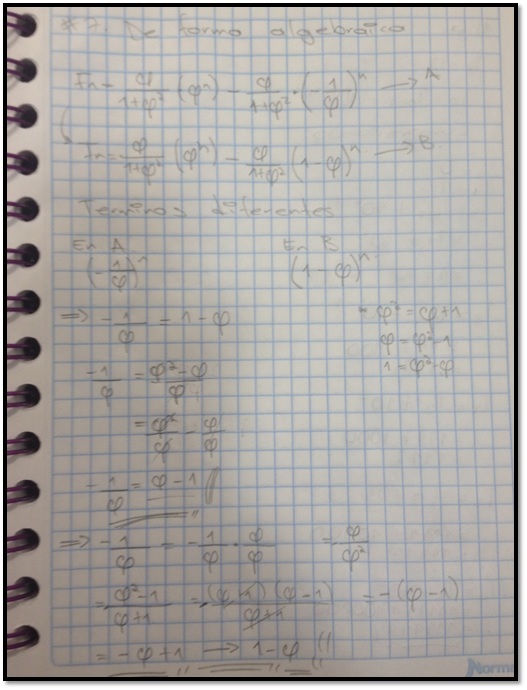 #7. De forma algebraica
Fn = φ/1+φ² (φⁿ) − φ/1+φ² · (−1/φ)ⁿ → A
Fn = φ/1+φ² (φⁿ) − φ/1+φ² (1−φ)ⁿ → B
Terminos diferentes
En A En B
(−1/φ)ⁿ (1−φ)ⁿ
⇒ −1/φ = 1−φ
φ² = φ+1
φ = φ²−1
1 = φ²−φ
−1/φ = φ²−φ/φ
= φ²/φ − φ/φ
−1/φ = φ−1
⇒ −1/φ = −1/φ · φ/φ = φ/φ²
= φ²−1/φ+1 = (φ+1)(φ−1)/φ+1 = −(φ−1)
= −φ+1 → 1−φ //
Norma